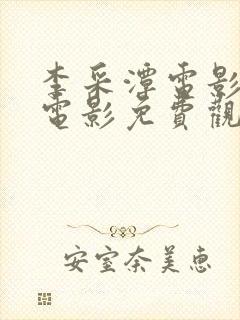 李采潭電影
電影免費觀
安室奈美恵